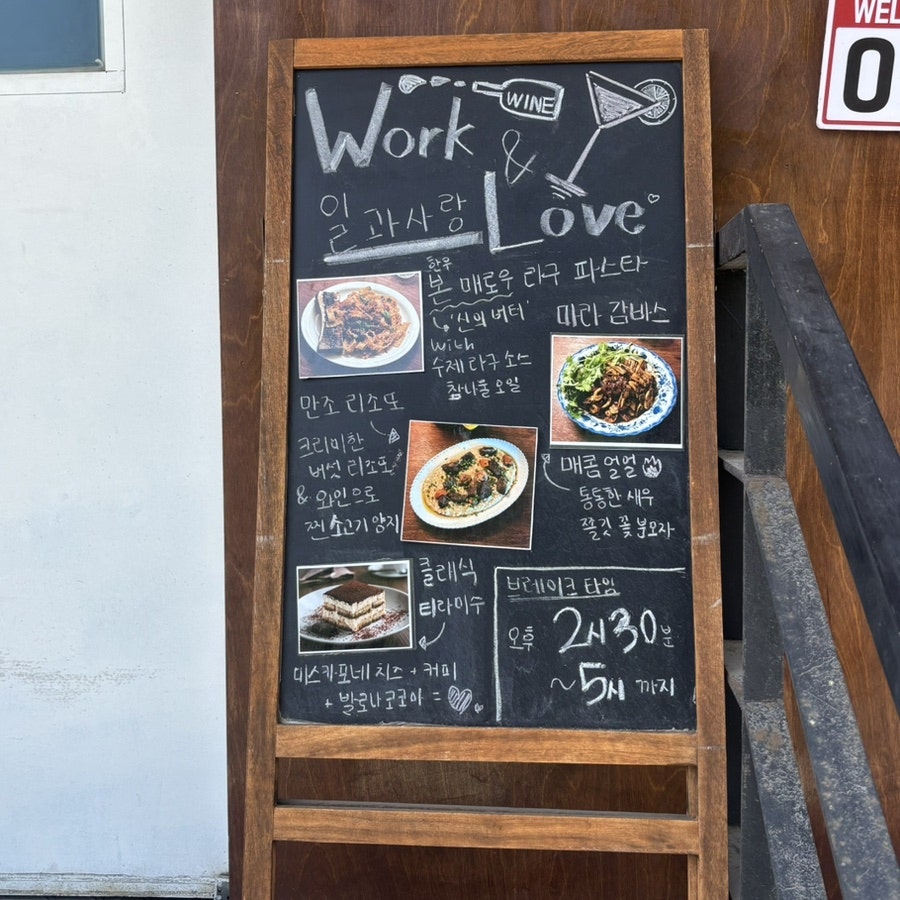 WEL
O
WINE
Work
&
Love
일과사랑
한우
본 매로우 라구 파스타
'신의 버터'
with
수제 라구 소스
참나물 오일
마라 감바스
만조 리소또
크리미한
버섯 리조또
& 와인으로
찐 소고기 양지
매콤 얼얼
통통한 새우
쫄깃 꽃 분모자
클래식
티라미수
마스카포네 치즈 + 커피
+ 발로나 코코아 =
브레이크 타임
오후 2시 30분
~ 5시 까지